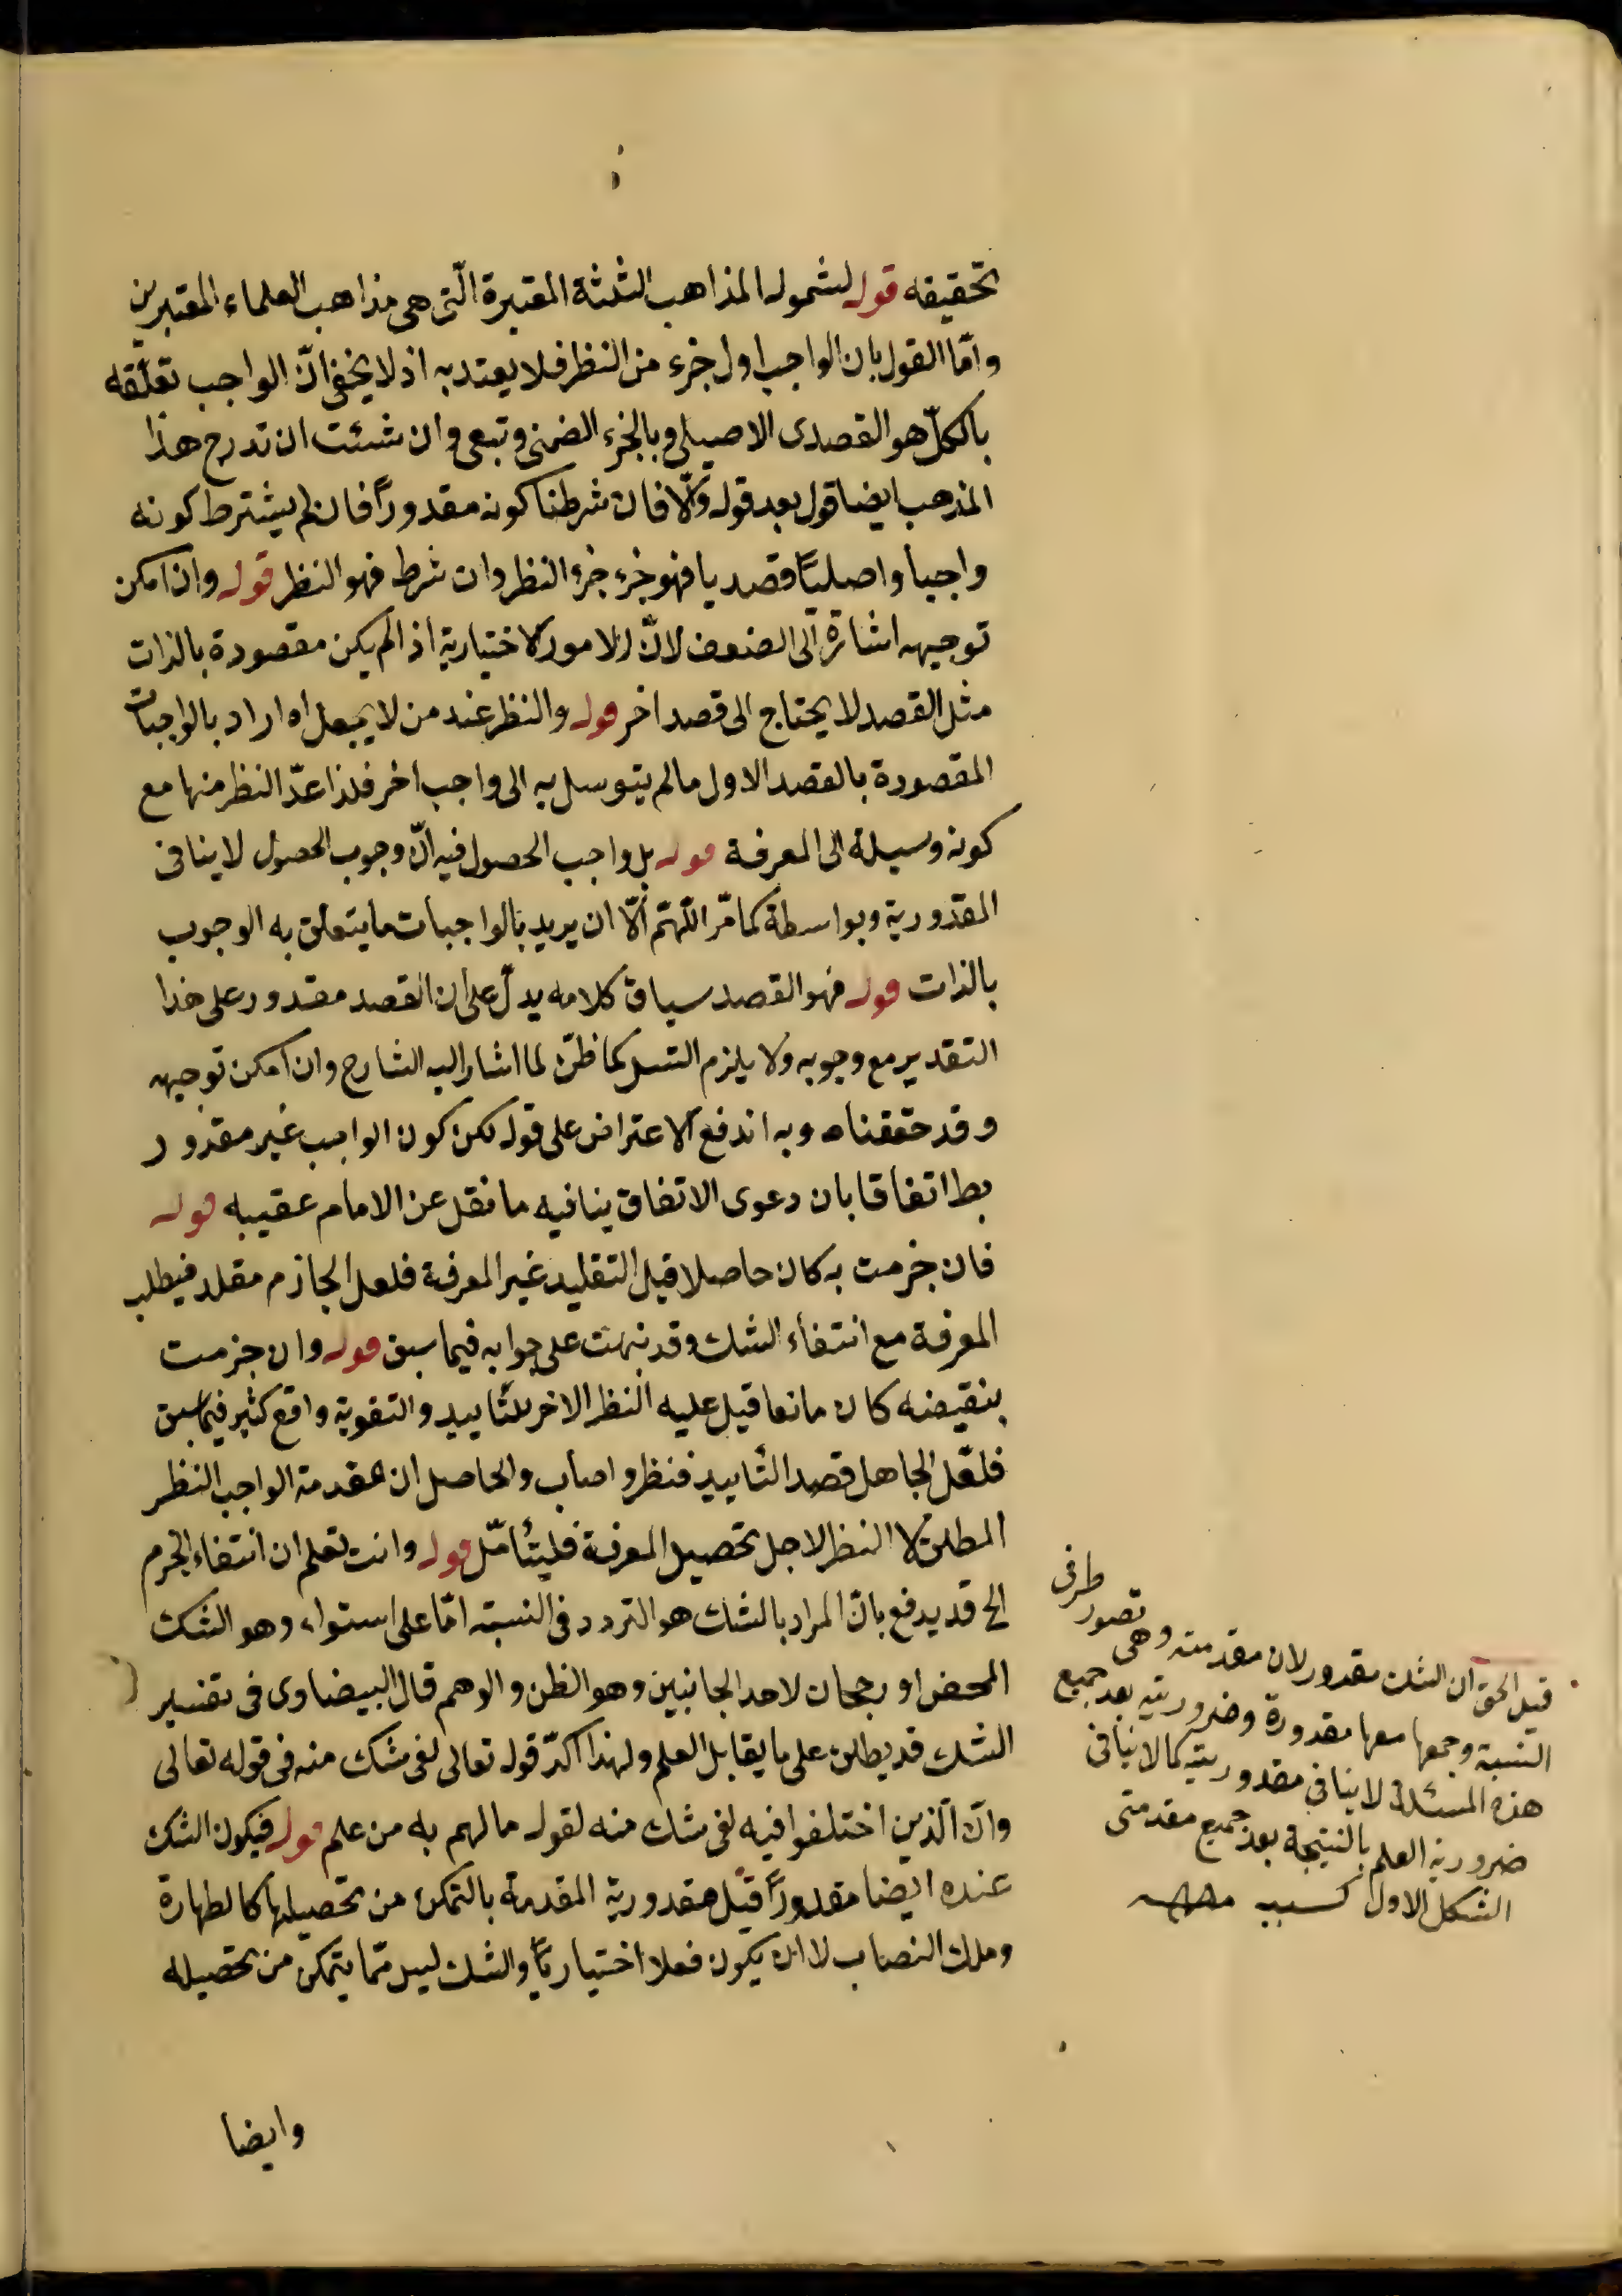 تحقيقه قوله لشموله المذاهب الثلثة المعتبرة الّتى هى مذاهب العلماء المعتبرين
وامّا القول بان الواجب اول جزء من النظر فلا يعتد به اذ لا يخفى انّ الواجب تعلّقه
بالكلّ هو القصدى الاصيلى وبالجزء الضمنى وتبعى وان شئت ان تدرج هذا
المذهب ايضا قول بعد قوله والّا فان شرطنا كونه مقدوراً فان لم يشترط كونه
واجبا واصليّا قصديا فهو جزء جزء النظر وان شرط فهو النظر قوله وان امكن
توجيهه اشارة الى الضعف لانّ الامور الاختيارية اذا لم يكن مقصودة بالذات
مثل القصد لا يحتاج الى قصد اخر قوله والنظر عند من لا يجعل اه اراد بالواجبات
المقصودة بالقصد الاول مالم يتوسل به الى واجب اخر فلذا عدّ النظر منها مع
كونه وسيلة الى المعرفة قوله بل واجب الحصول فيه انّ وجوب الحصول لا ينافى
المقدورية وبواسطة كما مّر اللّهمّ الّا ان يريد بالواجبات ما يتعلق به الوجوب
بالذات قوله فهو القصد سياق كلامه يدلّ على ان القصد مقدور على هذا
التقدير مع وجوبه ولا يلزم التسل كما ظنّ لما اشار اليه الشارح وان امكن توجيهه
وقد حققناه وبه اندفع الاعتراض على قوله لكن كون الواجب غير مقدور
بط اتفاقا بان دعوى الاتفاق ينافيه ما نقل عن الامام عقيبه قوله
فان جزمت به كان حاصلا قيل التقليد غير المعرفة فلعل الجازم مقلد فيطلب
المعرفة مع انتفاء الشك وقد نبهت على جوابه فيما سبق قوله وان جزمت
بنقيضه كان مانعا قيل عليه النظر الاخر للتأييد والتقوية واقع كثير فيما سبق
فلعّل الجاهل قصد التأييد فنظر واصاب والحاصل ان مقدمة الواجب النظر
المطلق لا النظر لاجل تحصيل المعرفة فليتأمّل قوله وانت تعلم ان انتفاء الجزم
الخ قد يدفع بانّ المراد بالشك هو التردد فى النسبة امّا على استواء وهو الشك
المحض او رجحان لاحد الجانبين وهو الظن والوهم قال البيضاوى فى تفسير
الشك قد يطلق على ما يقابل العلم ولهذا اكدّ قوله تعالى لفى شك منه فى قوله تعالى
وانّ الّذين اختلفوا فيه لفى شك منه لقوله مالهم به من علم قوله فيكون الشك
عنده ايضا مقدوراً قيل مقدورية المقدمة بالتمكن من تحصيلها كالطهارة
وملك النصاب لا ان يكون فعلا اختياريّا والشك ليس ممّا يتمكن من تحصيله
وايضا
طرفى
تصور
قيل الحق ان الشك مقدور لان مقدمته وهى
النسبة وجمعها معها مقدورة وضروريته بعد جميع
هذه المسئلة لا ينافى مقدوريته كما لا ينافى
ضرورية العلم بالنتيجة بعد جميع مقدمتى
الشكل الاول كسبيه